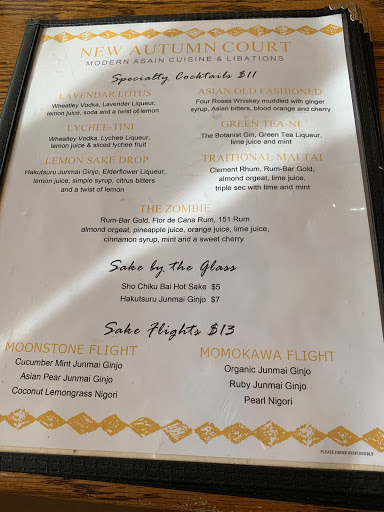 NEW AUTUMN COURT
MODERN ASAIN CUISINE & LIBATIONS
Specialty Cocktails $11
LAVENDAR LOTUS
Wheatley Vodka, Lavender Liqueur,
lemon juice, soda and a twist of lemon
LYCHEE-TINI
Wheatley Vodka, Lychee Liqueur,
lemon juice & sliced lychee fruit
LEMON SAKE DROP
Hakutsuru Junmai Ginjo, Elderflower Liqueur,
lemon juice, simple syrup, citrus bitters
and a twist of lemon
ASIAN OLD FASHIONED
Four Roses Whiskey muddled with ginger
syrup, Asian bitters, blood orange and cherry
GREEN TEA-NI
The Botanist Gin, Green Tea Liqueur,
lime juice and mint
TRAITIONAL MAI TAI
Clement Rhum, Rum-Bar Gold,
almond orgeat, lime juice,
triple sec with lime and mint
THE ZOMBIE
Rum-Bar Gold, Flor de Cana Rum, 151 Rum
almond orgeat, pineapple juice, orange juice, lime juice,
cinnamon syrup, mint and a sweet cherry
Sake by the Glass
Sho Chiku Bai Hot Sake $5
Hakutsuru Junmai Ginjo $7
Sake Flights $13
MOONSTONE FLIGHT
Cucumber Mint Junmai Ginjo
Asian Pear Junmai Ginjo
Coconut Lemongrass Nigori
MOMOKAWA FLIGHT
Organic Junmai Ginjo
Ruby Junmai Ginjo
Pearl Nigori
PLEASE DRINK RESPONSIBLY